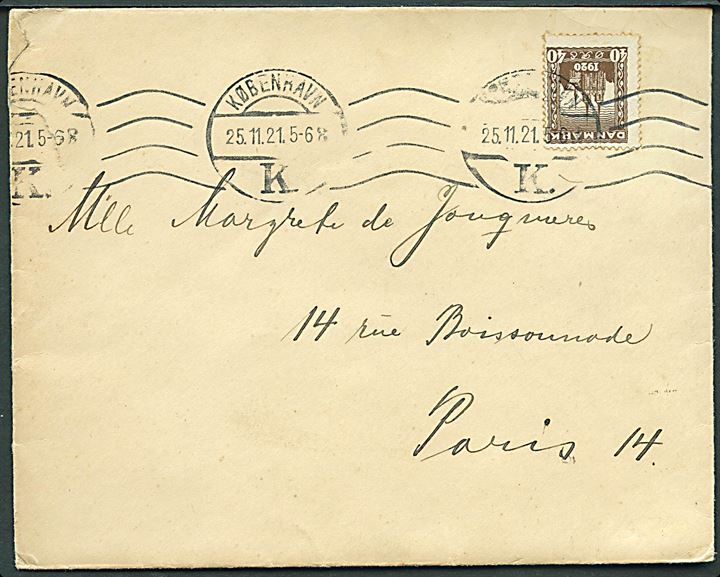 DANMARK
1920
40 ØRE 40
KØBENHAVN
.21. 5-6
K.
KØBENHAVN
25.11.21. 5-6
K
25.11.21. 5
K.
Mlle Margrete de Jongneres
14 rue Boissonnade
Paris 14.